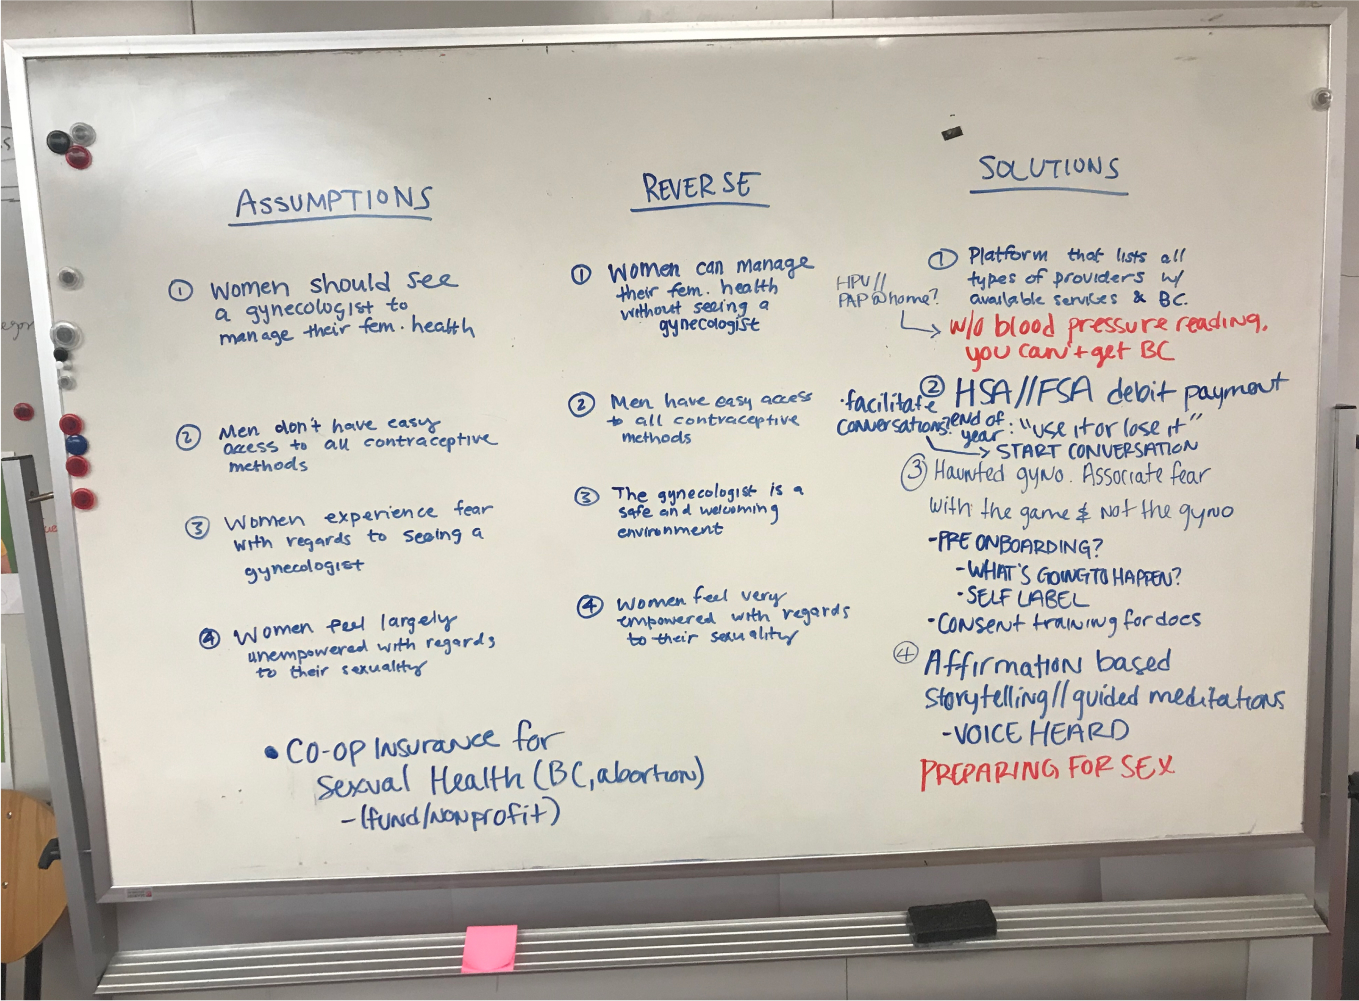 ASSUMPTIONS
① Women should see
a gynecologist to
manage their fem. health
② Men don't have easy
access to all contraceptive
methods
③ Women experience fear
with regards to seeing a
gynecologist
④ Women feel largely
unempowered with regards
to their sexuality
• CO-OP INSURANCE for
Sexual Health (BC, abortion)
- (fund/nonprofit)
REVERSE
① Women can manage
their fem. health
without seeing a
gynecologist
② Men have easy access
to all contraceptive
methods
③ The gynecologist is a
safe and welcoming
environment
④ Women feel very
empowered with regards
to their sexuality
SOLUTIONS
① Platform that lists all
types of providers w/
available services & BC.
HPV//
PAP@home?
w/o blood pressure reading,
you can't get BC
② HSA//FSA debit payment
• facilitate
conversations?
end of
year: "use it or lose it"
START CONVERSATION
③ Haunted gyno. Associate fear
with the game & not the gyno
- PRE ONBOARDING?
- WHAT'S GOING TO HAPPEN?
• SELF LABEL
• CONSENT training for docs
④ Affirmation based
storytelling//guided meditations
- VOICE HEARD
PREPARING FOR SEX